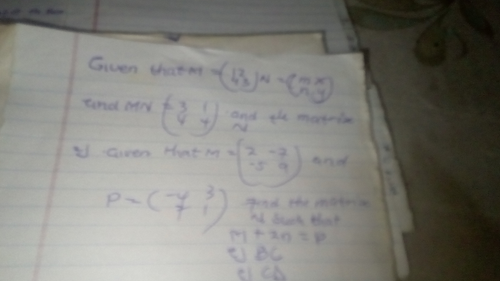 Given that M = (1 2 4 3) N = (m x n y)
and MN = (3 1 4 7) and the matrix
N
2) Given that M = (2 -2 -5 9) and
P = (-4 3 7 1) find the matrix
N such that
M + 2n = P
BC
CD